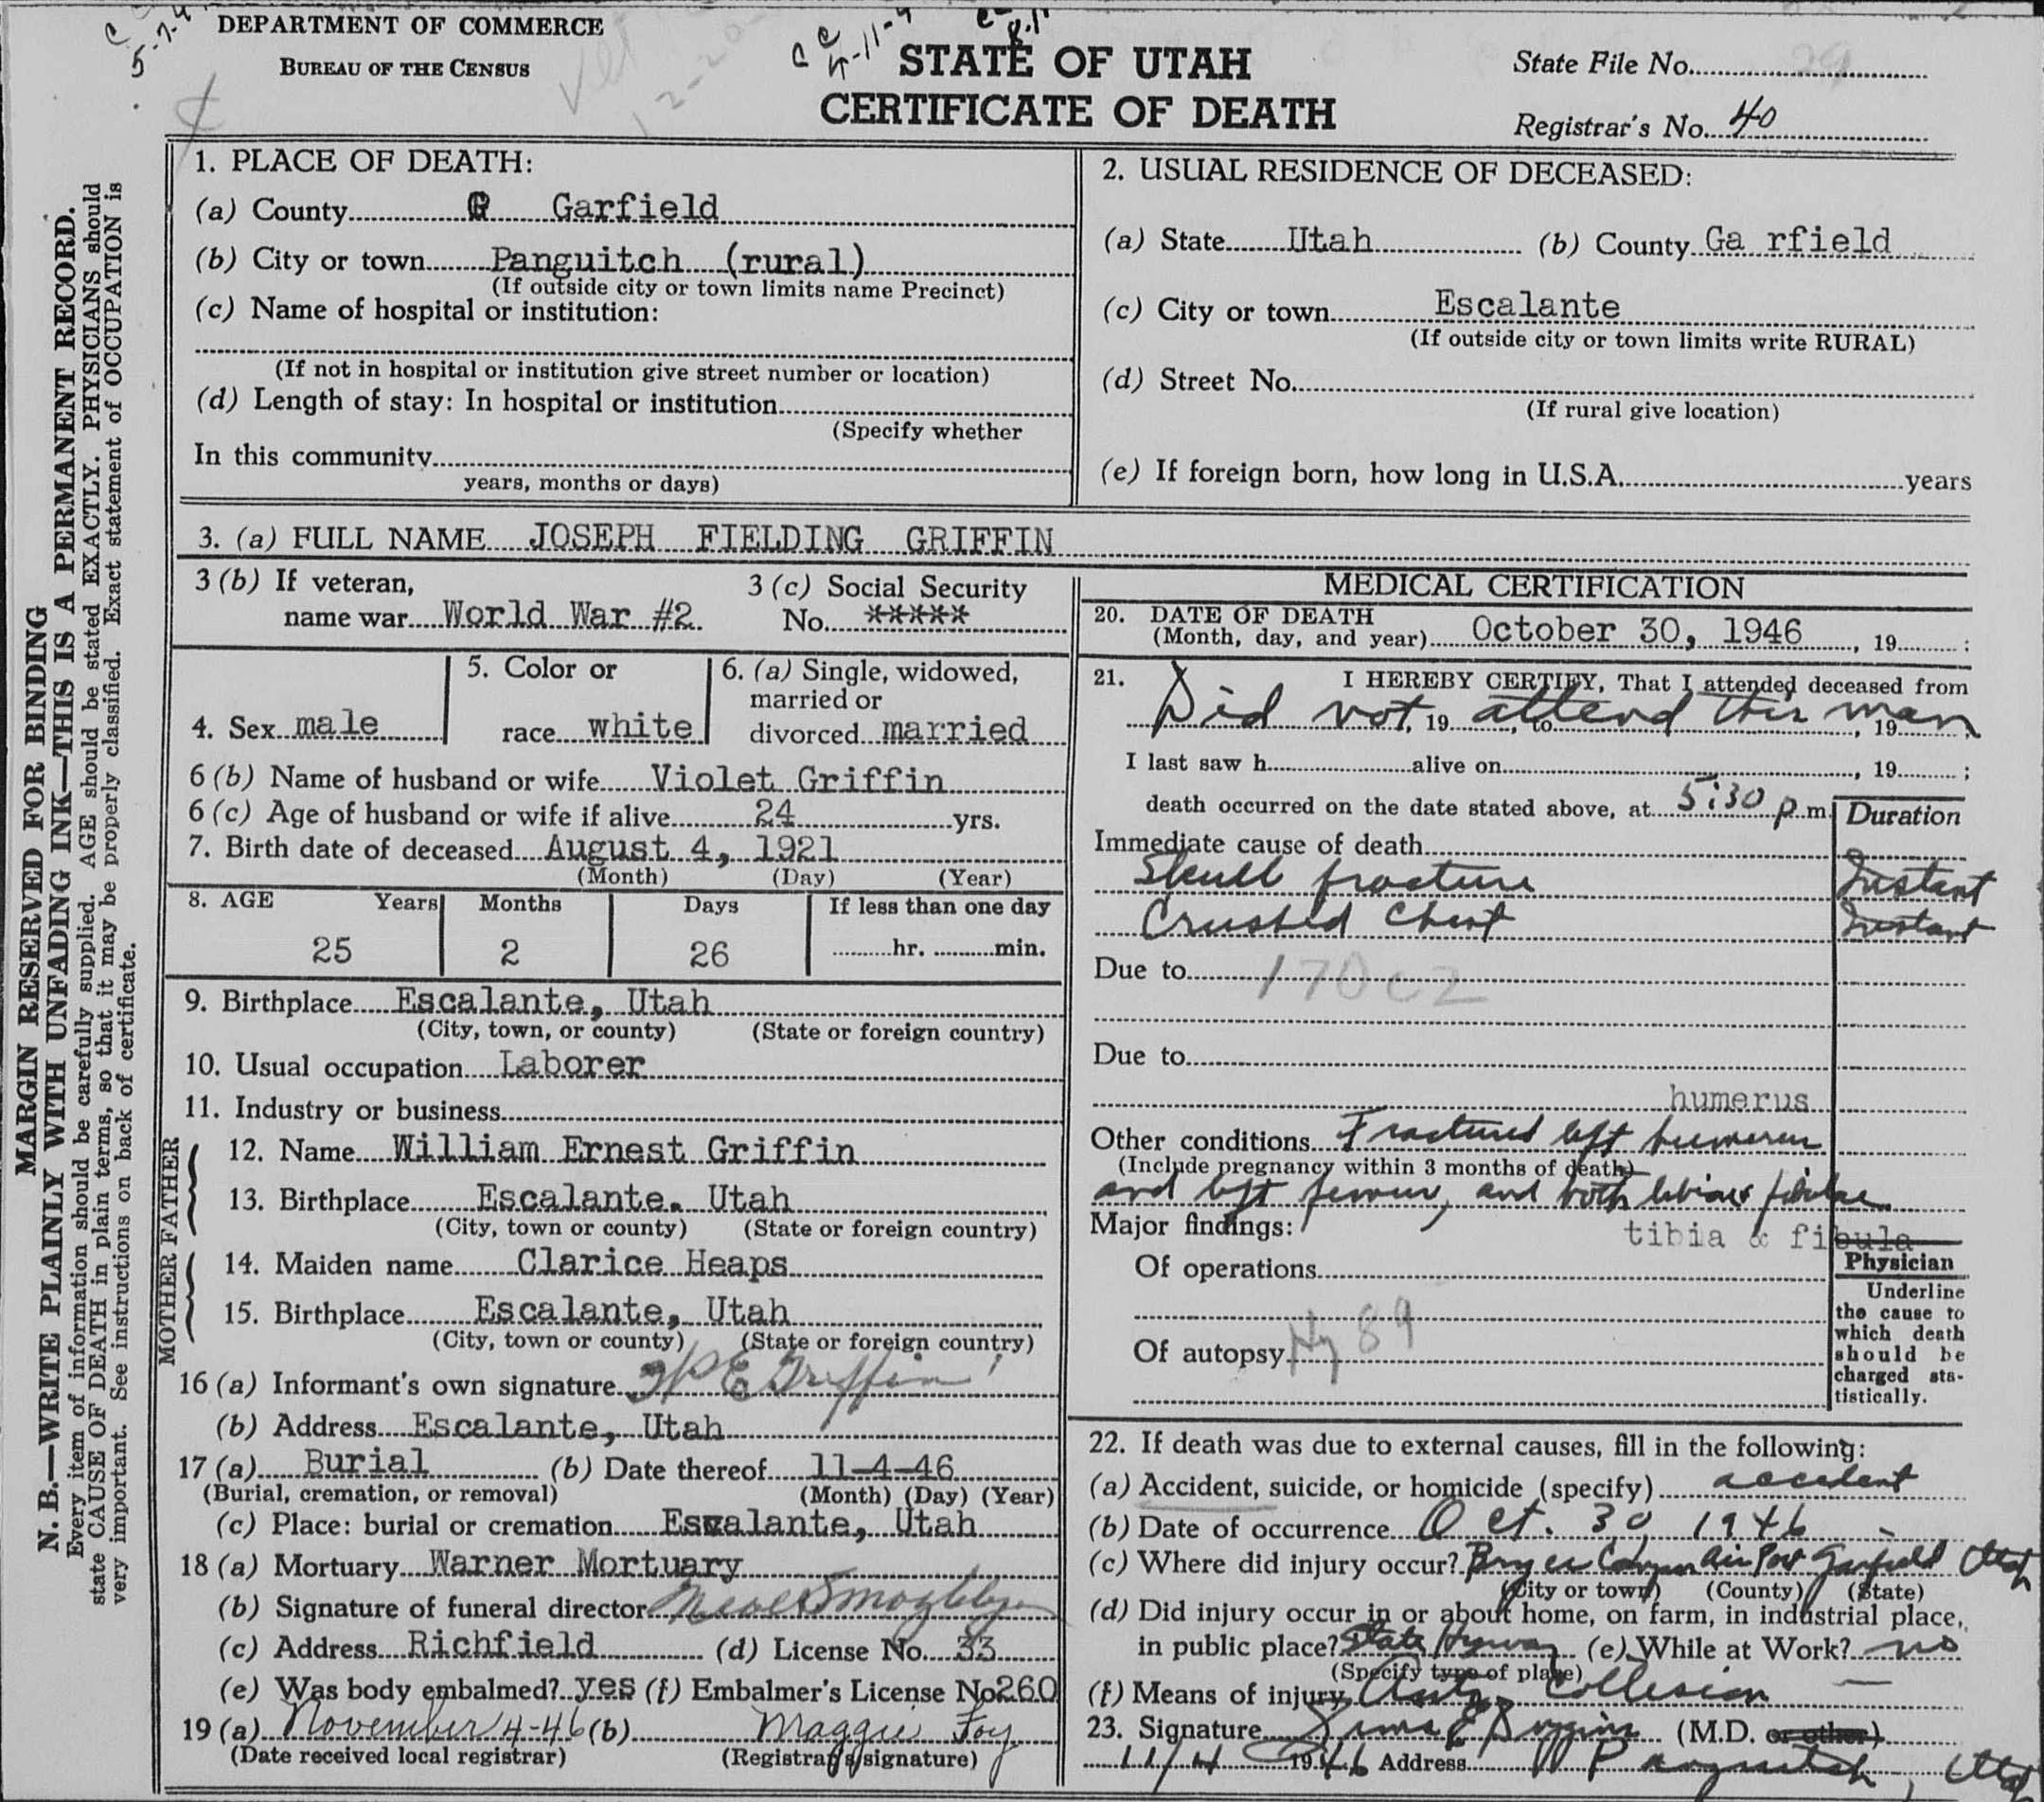 DEPARTMENT OF COMMERCE
BUREAU OF THE CENSUS
STATE OF UTAH
CERTIFICATE OF DEATH
State File No.
Registrar's No. 40
MARGIN RESERVED FOR BINDING
N. B.—WRITE PLAINLY WITH UNFADING INK—THIS IS A PERMANENT RECORD.
Every item of information should be carefully supplied. AGE should be stated EXACTLY. PHYSICIANS should
state CAUSE OF DEATH in plain terms, so that it may be properly classified. Exact statement of OCCUPATION is
very important. See instructions on back of certificate.
1. PLACE OF DEATH:
(a) County Garfield
(b) City or town Panguitch (rural)
(If outside city or town limits name Precinct)
(c) Name of hospital or institution:
(If not in hospital or institution give street number or location)
(d) Length of stay: In hospital or institution
(Specify whether
In this community
years, months or days)
2. USUAL RESIDENCE OF DECEASED:
(a) State Utah (b) County Ga rfield
(c) City or town Escalante
(If outside city or town limits write RURAL)
(d) Street No.
(If rural give location)
(e) If foreign born, how long in U.S.A. years
3. (a) FULL NAME JOSEPH FIELDING GRIFFIN
3 (b) If veteran,
name war World War #2.
3 (c) Social Security
No. *****
4. Sex male
5. Color or
race white
6. (a) Single, widowed,
married or
divorced married
6 (b) Name of husband or wife Violet Griffin
6 (c) Age of husband or wife if alive 24 yrs.
7. Birth date of deceased August 4, 1921
(Month) (Day) (Year)
8. AGE Years Months Days If less than one day
25 2 26 hr. min.
9. Birthplace Escalante, Utah
(City, town, or county) (State or foreign country)
10. Usual occupation Laborer
11. Industry or business
FATHER
12. Name William Ernest Griffin
13. Birthplace Escalante. Utah
(City, town or county) (State or foreign country)
MOTHER
14. Maiden name Clarice Heaps
15. Birthplace Escalante, Utah
(City, town or county) (State or foreign country)
16 (a) Informant's own signature W E Griffin
(b) Address Escalante, Utah
17 (a) Burial (b) Date thereof 11-4-46
(Burial, cremation, or removal) (Month) (Day) (Year)
(c) Place: burial or cremation Escalante, Utah
18 (a) Mortuary Warner Mortuary
(b) Signature of funeral director
(c) Address Richfield (d) License No. 33
(e) Was body embalmed? yes (f) Embalmer's License No 260
19 (a) November 4-46 (b) Maggie Foy
(Date received local registrar) (Registrar's signature)
MEDICAL CERTIFICATION
20. DATE OF DEATH
(Month, day, and year) October 30, 1946, 19 ;
21. I HEREBY CERTIFY, That I attended deceased from
Did not, 19 attend, to this man, 19 ;
I last saw h alive on , 19 ;
death occurred on the date stated above, at 5:30 p m.
Duration
Immediate cause of death
Skull fracture Instant
Crushed Chest Instant
Due to 170 c2
Due to
humerus
Other conditions Fractured left humerus
(Include pregnancy within 3 months of death)
and left femur, and both tibias & fibulae
Major findings: tibia & fibula
Of operations
Of autopsy Hy 89
Physician
Underline
the cause to
which death
should be
charged sta-
tistically.
22. If death was due to external causes, fill in the following:
(a) Accident, suicide, or homicide (specify) accident
(b) Date of occurrence Oct. 30 1946
(c) Where did injury occur? Bryce Canyon Air Port Garfield Utah
(City or town) (County) (State)
(d) Did injury occur in or about home, on farm, in industrial place,
in public place? State Hyway (e) While at Work? no
(Specify type of place)
(f) Means of injury Auto Collision
23. Signature (M.D. or other)
11/4 1946 Address Panguitch, Utah